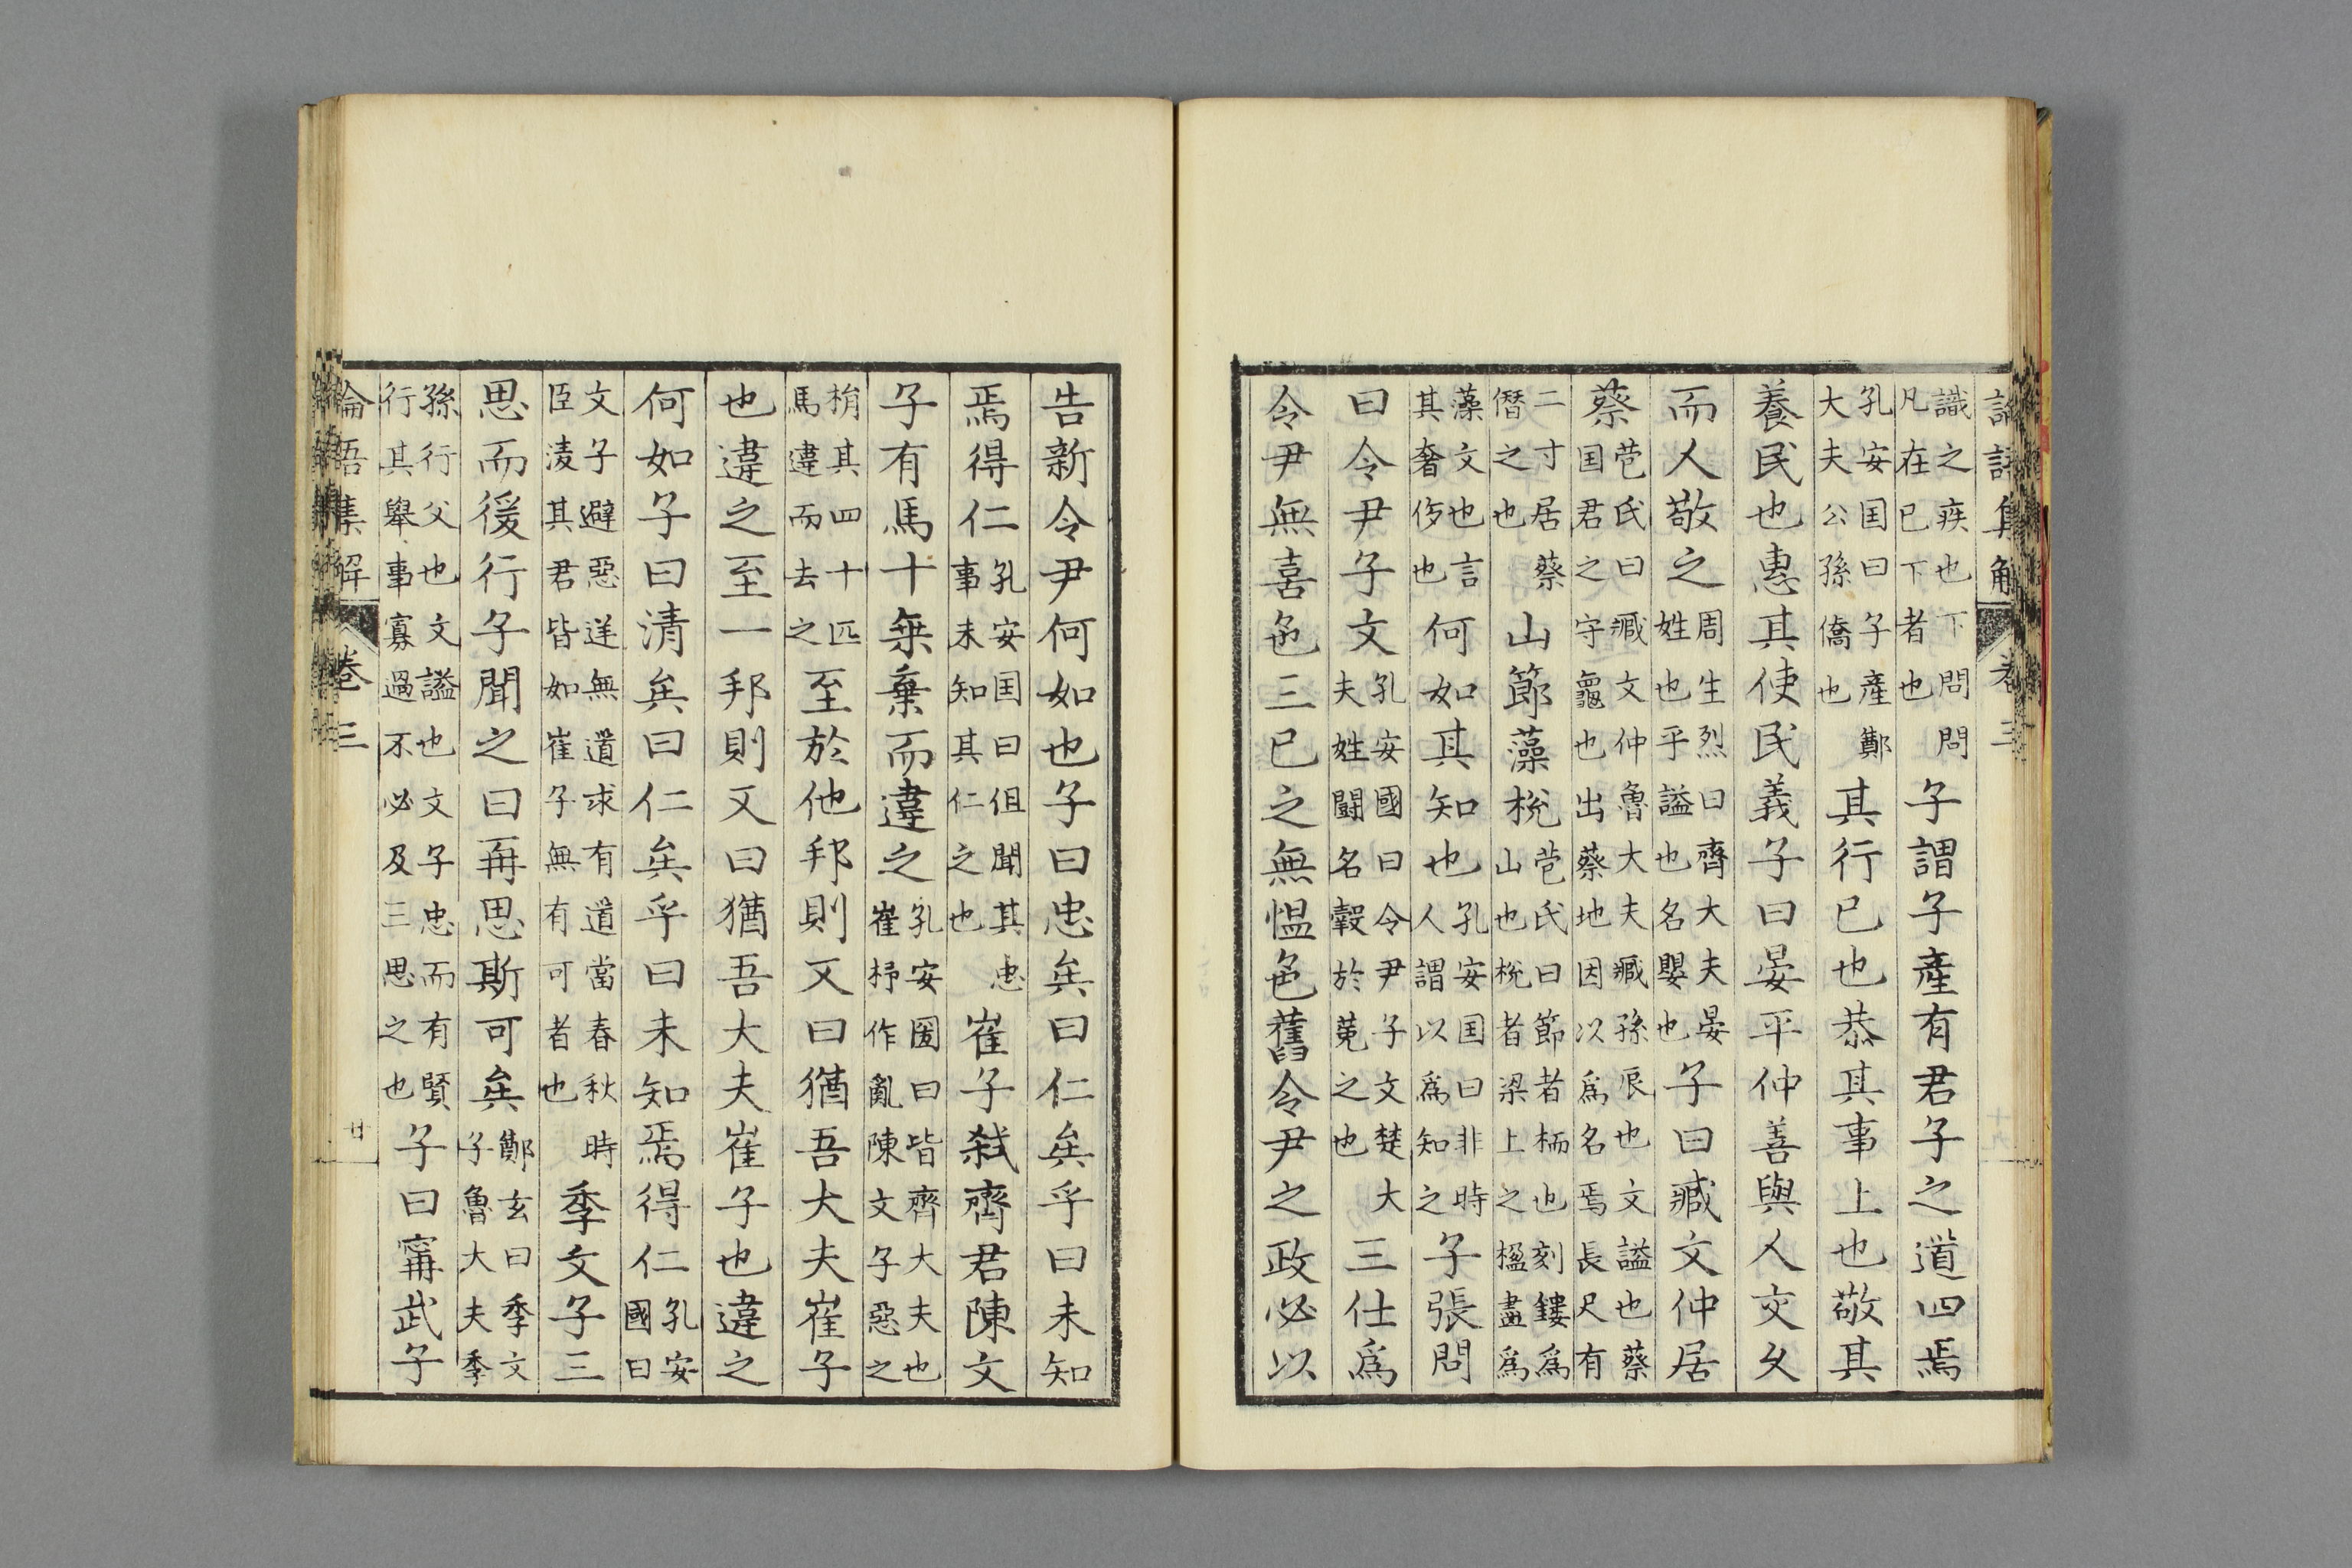 論語集解 卷三 十九
識之疾也下問問凡在已下者也子謂子產有君子之道四焉
孔安国曰子產鄭大夫公孫僑也其行已也恭其事上也敬其
養民也惠其使民義子曰晏平仲善與人交久
而人敬之周生烈曰齊大夫晏姓也平謚也名嬰也子曰臧文仲居
蔡苞氏曰臧文仲魯大夫臧孫辰也文謚也蔡国君之守龜也出蔡地因以爲名焉長尺有
二寸居蔡僭之也山節藻梲苞氏曰節者栭也刻鏤爲山也梲者梁上之楹畫爲
藻文也言其奢侈也何如其知也孔安国曰非時人謂以爲知之子張問
曰令尹子文孔安國曰令尹子文楚大夫姓鬪名穀於菟之也三仕爲
令尹無喜色三已之無愠色舊令尹之政必以
告新令尹何如也子曰忠矣曰仁矣乎曰未知
焉得仁孔安国曰但聞其忠事未知其仁之也崔子弑齊君陳文
子有馬十乗棄而違之孔安國曰皆齊大夫也崔杼作亂陳文子惡之
捐其四十匹馬違而去之至於他邦則又曰猶吾大夫崔子
也違之至一邦則又曰猶吾大夫崔子也違之
何如子曰清矣曰仁矣乎曰未知焉得仁孔安國曰
文子避惡逆無道求有道當春秋時臣淩其君皆如崔子無有可者也季文子三
思而後行子聞之曰再思斯可矣鄭玄曰季文子魯大夫季
孫行父也文謚也文子忠而有賢行其舉事寡過不必及三思之也子曰甯武子
論語集解 卷三 廿